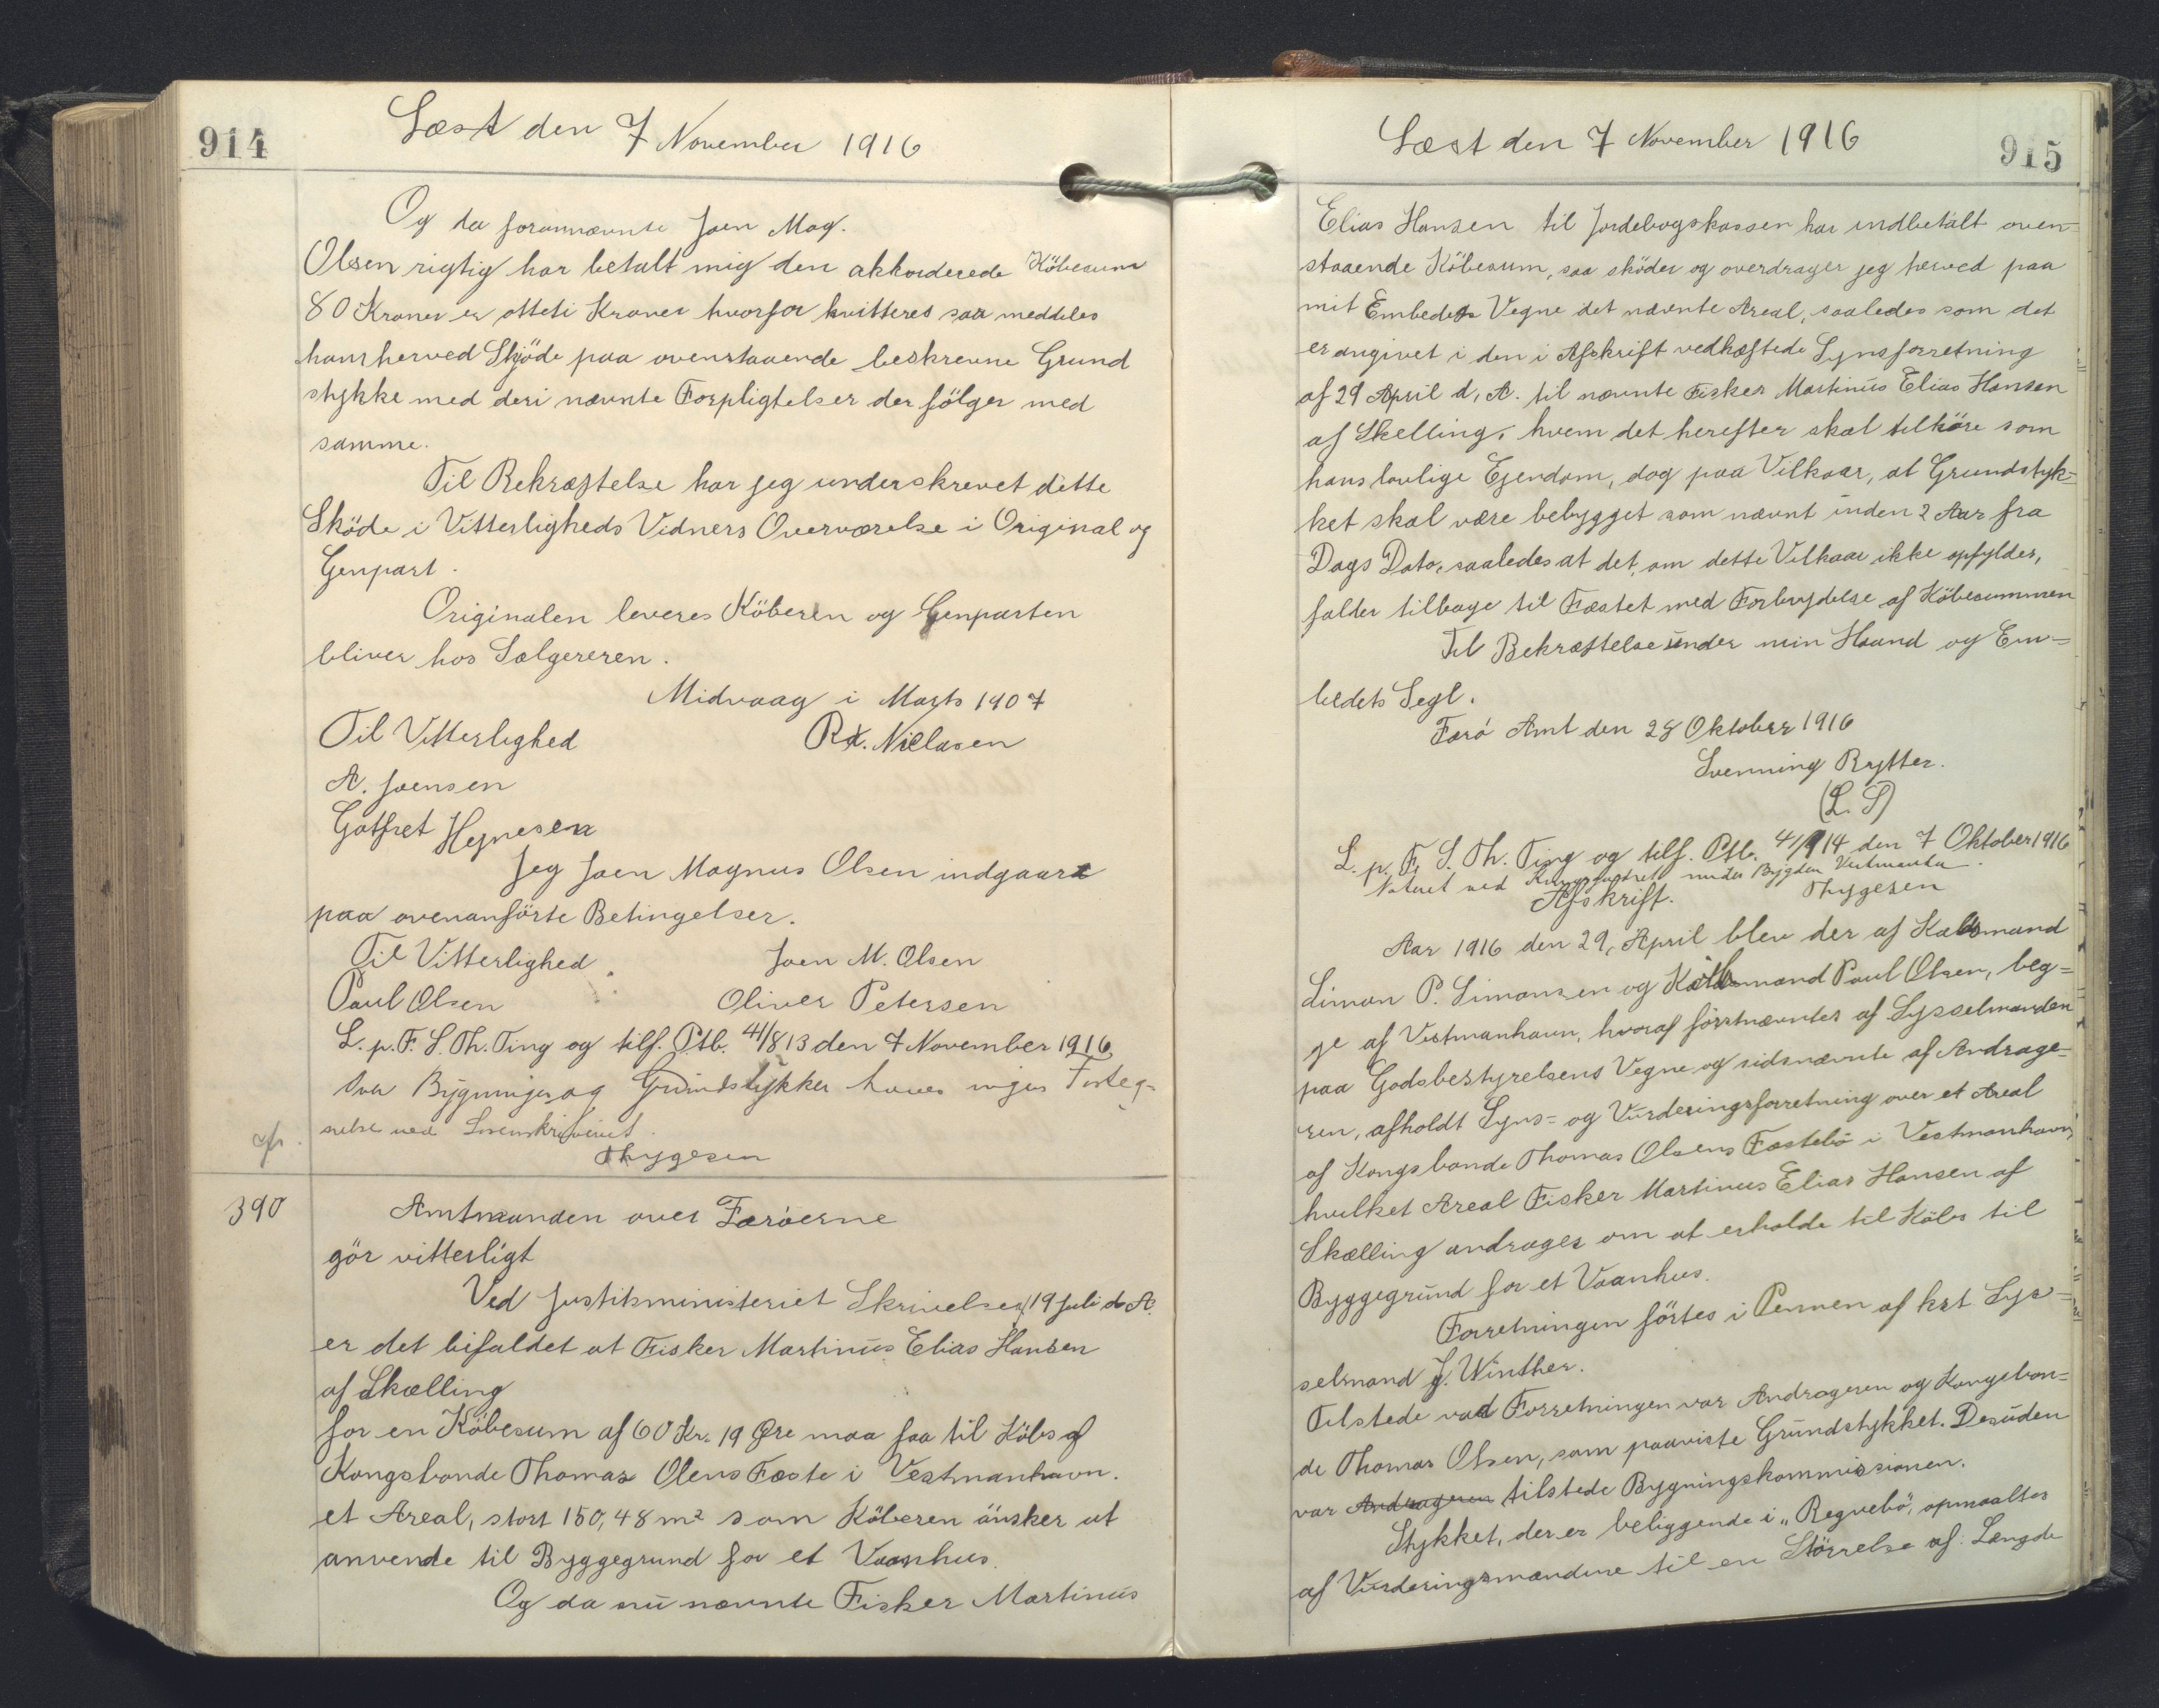 914
Læst den 7 November 1916
Og da forannævnte Joen Mag.
Olsen rigtig har betalt mig den akkorderede Köbesum
80 Kroner er otteti Kroner hvorfor kvitteres saa meddeles
ham herved Skjöde paa ovenstaaende beskrevne Grund
stykke med deri nævnte Forpligtelser der fölger med
samme.
Til Bekræftelse har jeg underskrevet dette
Sköde i Vitterligheds Vidners Overværelse i Original og
Genpart.
Originalen leveres Köberen og Genparten
bliver hos Sælgereren.
Midvaag i Marts 1907
Til Vitterlighed Rd. Nielasen
A. Joensen
Gotfret Hejnesen
Jeg Joen Magnus Olsen indgaar
paa ovenanförte Betingelser.
Til Vitterlighed Joen M. Olsen
Paul Olsen Oliver Petersen
L. p. F. S. Th. Ting og tilf. Ptb. 41/813 den 7 November 1916
Bygninger og Grundstykker haves ingen Forteg-
nelse ved Sorenskriveriet.
Thygesen
390
Amtmanden over Færöerne
gör vitterligt
Ved Justitsministeriet Skrivelse 19 Juli d. A.
er det bifaldet at Fisker Martinus Elias Hansen
af Skælling
for en Köbesum af 60 Kr. 19 Øre maa faa til Köbs af
Kongsbonde Thomas Olens Fæste i Vestmanhavn.
et Areal, stort 150,48 m² som Köberen önsker at
anvende til Byggegrund for et Vaanhus.
Og da nu nævnte Fisker Martinus
Læst den 7 November 1916
915
Elias Hansen til Jordebogskassen har indbetalt oven-
staaende Köbesum, saa sköder og overdrager jeg herved paa
mit Embedes Vegne det nævnte Areal, saaledes som det
er angivet i den i Afskrift vedhæftede Synsforretning
af 29 April d. A. til nævnte Fisker Martinus Elias Hansen
af Skelling, hvem det herefter skal tilhöre som
hans lovlige Ejendom, dog paa Vilkaar, at Grundstyk=
ket skal være bebygget som nævnt inden 2 Aar fra
Dags Dato, saaledes at det, om dette Vilkaar ikke opfyldes,
falder tilbage til Fæstet med Forbrydelse af Köbesummen
Til Bekræftelse under min Haand og Em=
bedets Segl.
Færö Amt den 28 Oktober 1916
Svenning Rytter.
(L. S)
L. p. F. S. Th. Ting og tilf. Ptb. 41/914 den 7 Oktober 1916
Noteret ved Kongsfæstet under Bygden Vestmanha .
Afskrift. Thygesen
Aar 1916 den 29, April blev der af Kaldsmand
Simon P. Simonsen og Kaldsmand Paul Olsen, beg=
ge af Vestmanhavn, hvoraf förstnævntes af Sysselmanden
paa Godsbestyrelsens Vegne og sidsnævnte af Andrage=
ren, afholdt Syns= og Vurderingsforretning over et Areal
af Kongsbonde Thomas Olsens Fæstebö i Vestmanhavn,
hvilket Areal Fisker Martinus Elias Hansen af
Skælling andrager om at erholde til Köbs til
Byggegrund for et Vaanhus.
Forretningen förtes i Pennen af kst. Sys=
selmand J. Winther.
Tilstede ved Forretningen var Andrageren og Kongsbon=
de Thomas Olsen, som paaviste Grundstykket. Desuden
var Andrageren tilstede Bygningskommissionen.
Stykket, der er beliggende i „Regnebö", opmaaltes
af Vurderingsmændene til en Störrelse af: Længde